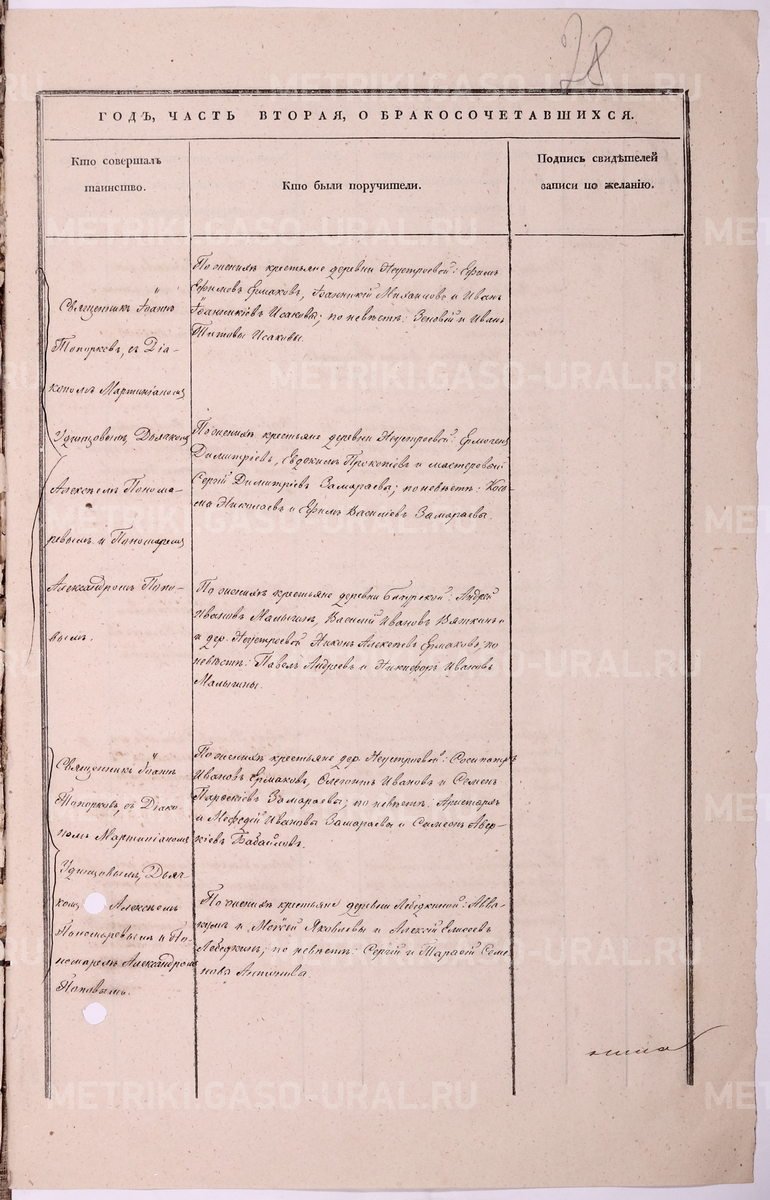 28
ГОДЪ, ЧАСТЬ ВТОРАЯ, О БРАКОСОЧЕТАВШИХСЯ.
Кто совершалъ
таинство.
Кто были поручители.
Подпись свидѣтелей
записи по желанію.
Священникъ Іоаннъ
Топорковъ, съ Діа-
кономъ Мартиніаномъ
Удинцовымъ, Дьячкомъ
Алексѣемъ Понома-
ревымъ и Пономаремъ
Александромъ Попо-
вымъ.
По женихѣ крестьяне деревни Неустроевой: Ефимъ
Ефимовъ Ермаковъ, Іоанникій Михаиловъ и Иванъ
Іоанникіевъ Исаковы; по невѣстѣ: Зеновій и Иванъ
Титовы Исаковы.
По женихѣ крестьяне деревни Неустроевой: Ермогенъ
Димитріевъ, Евдокимъ Прокопіевъ и мастеровой
Сергій Димитріевъ Замараевы; по невѣстѣ: Кось-
ма Николаевъ и Ефимъ Василіевъ Замараевы.
По женихѣ крестьяне деревни: Андрей
Ивановъ Малыгинъ, Василій Ивановъ Вяткинъ и
и дер. Неустроевой Никонъ Алексѣевъ Ермаковъ, по
невѣстѣ: Павелъ Андреевъ и Никифоръ Ивановъ
Малыгины.
Священникъ Іоаннъ
Топорковъ, съ Діако-
номъ Мартиніаномъ
Удинцовымъ, Дьяч-
комъ Алексѣемъ
Пономаревымъ и По-
номаремъ Александромъ
Поповымъ.
По женихѣ крестьяне дер. Неустроевой: Сосипатръ
Ивановъ Ермаковъ, Ивановъ и Семенъ
Замараевы; по невѣстѣ: Аристархъ
и Мефодій Ивановы Замараевы и Симеонъ Авер-
кіевъ Бабайловъ.
По женихѣ крестьяне деревни Лебедкиной: Авва-
кумъ и Моѵсей Яковлевы и Алексѣй Елисеевъ
Лебедкины; по невѣстѣ: Сергій и Тарасій Семе-
новы
METRIKI.GASO-URAL.RU